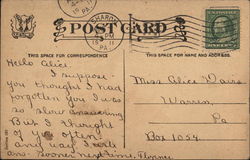 POST CARD
THIS SPACE FOR CORRESPONDENCE
THIS SPACE FOR NAME AND ADDRESS.
Hello Alice
I suppose
you thought I had
forgotten you I was
so slow answering
But I thought
of you often
any way I will
ans. sooner next time.
Miss Alice
Warren
Pa
Box 1054